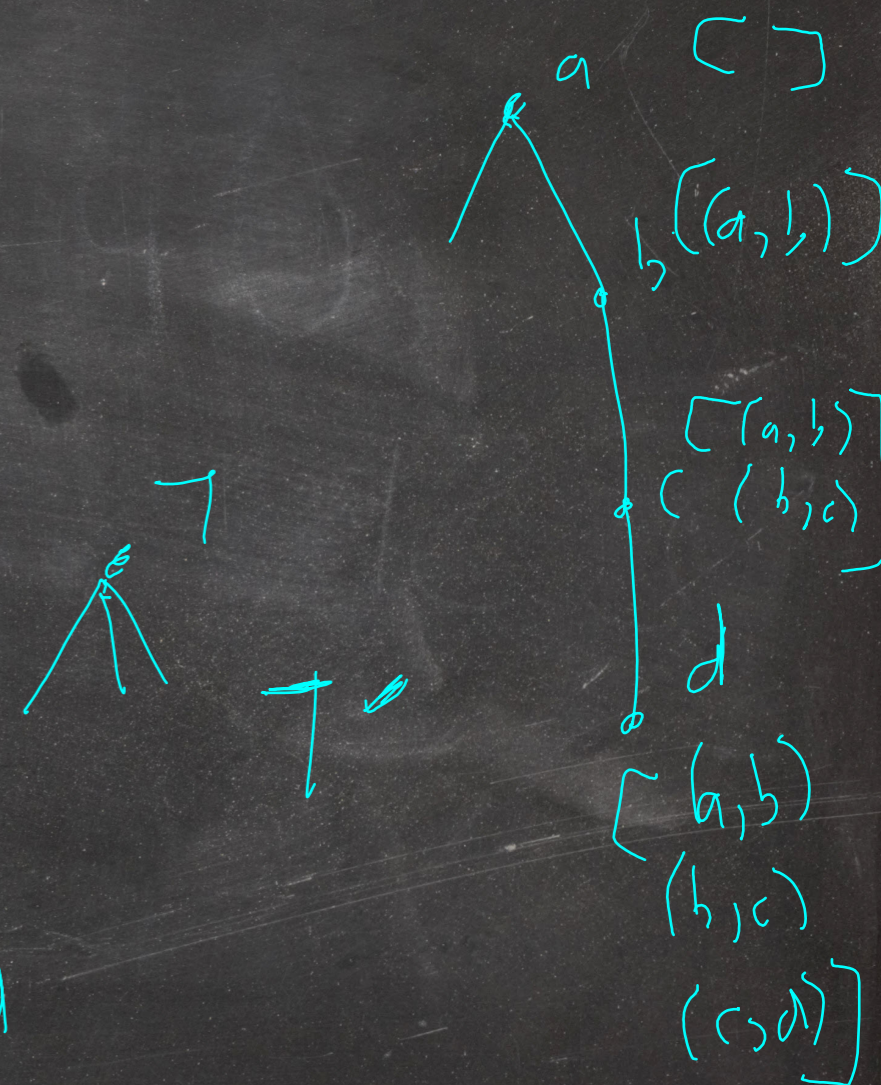 a [ ]
b [(a, b)]
[(a, b)
c (b, c)]
d
[(a, b)
(b, c)
(c, d)]